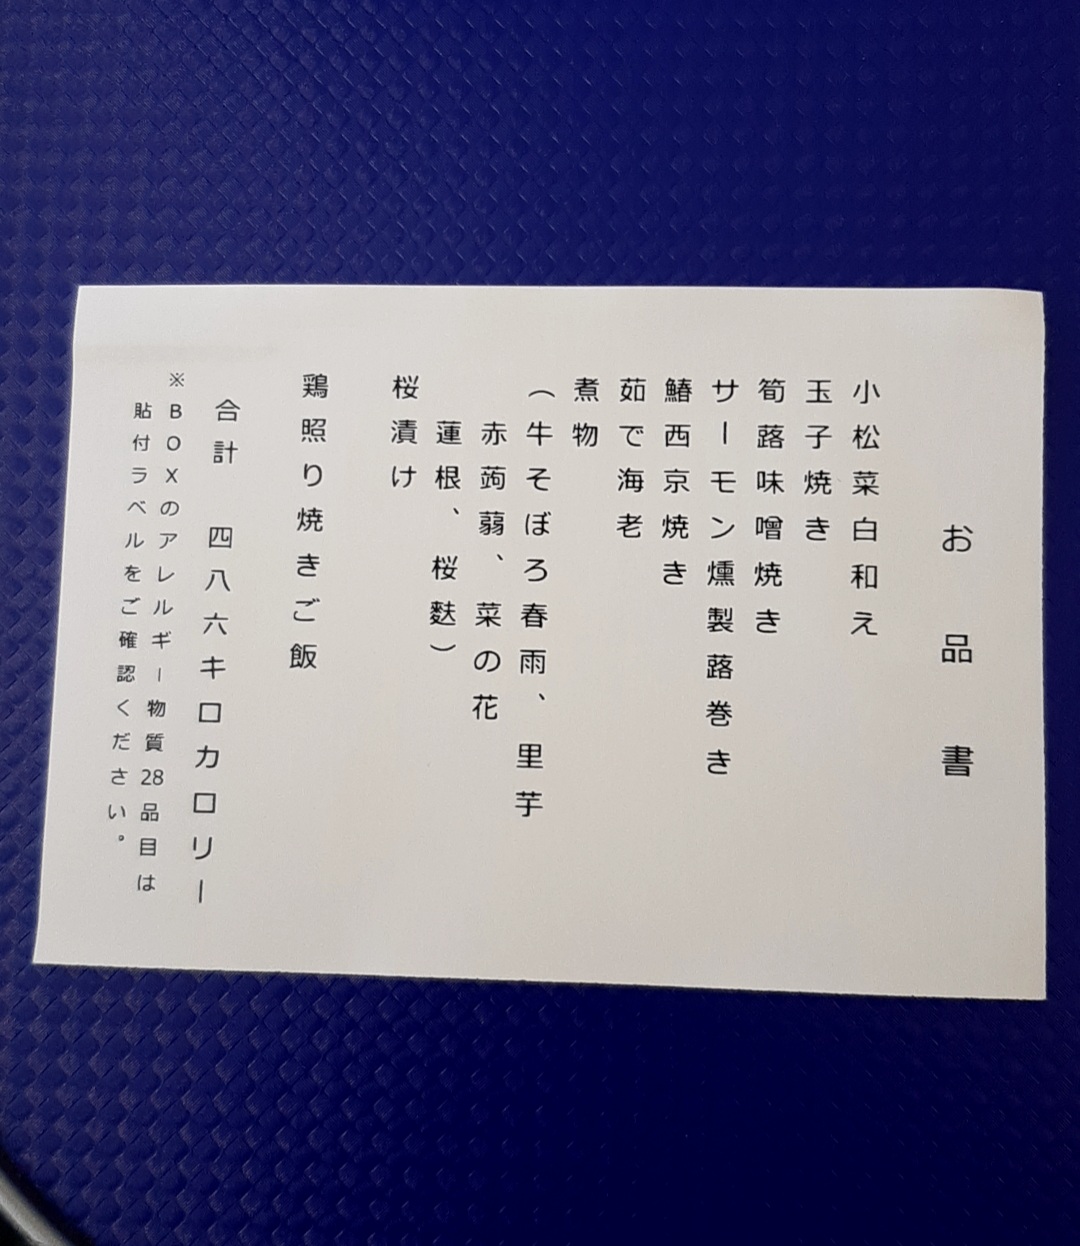 お品書
小松菜白和え
玉子焼き
筍蕗味噌焼き
サーモン燻製蕗巻き
鰆西京焼き
茹で海老
煮物
（牛そぼろ春雨、里芋
赤蒟蒻、菜の花
蓮根、桜麩）
桜漬け
鶏照り焼きご飯
合計　四八六キロカロリー
※BOXのアレルギー物質28品目は
貼付ラベルをご確認ください。